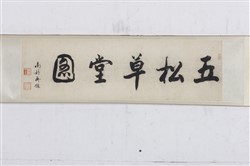 五松草堂圖